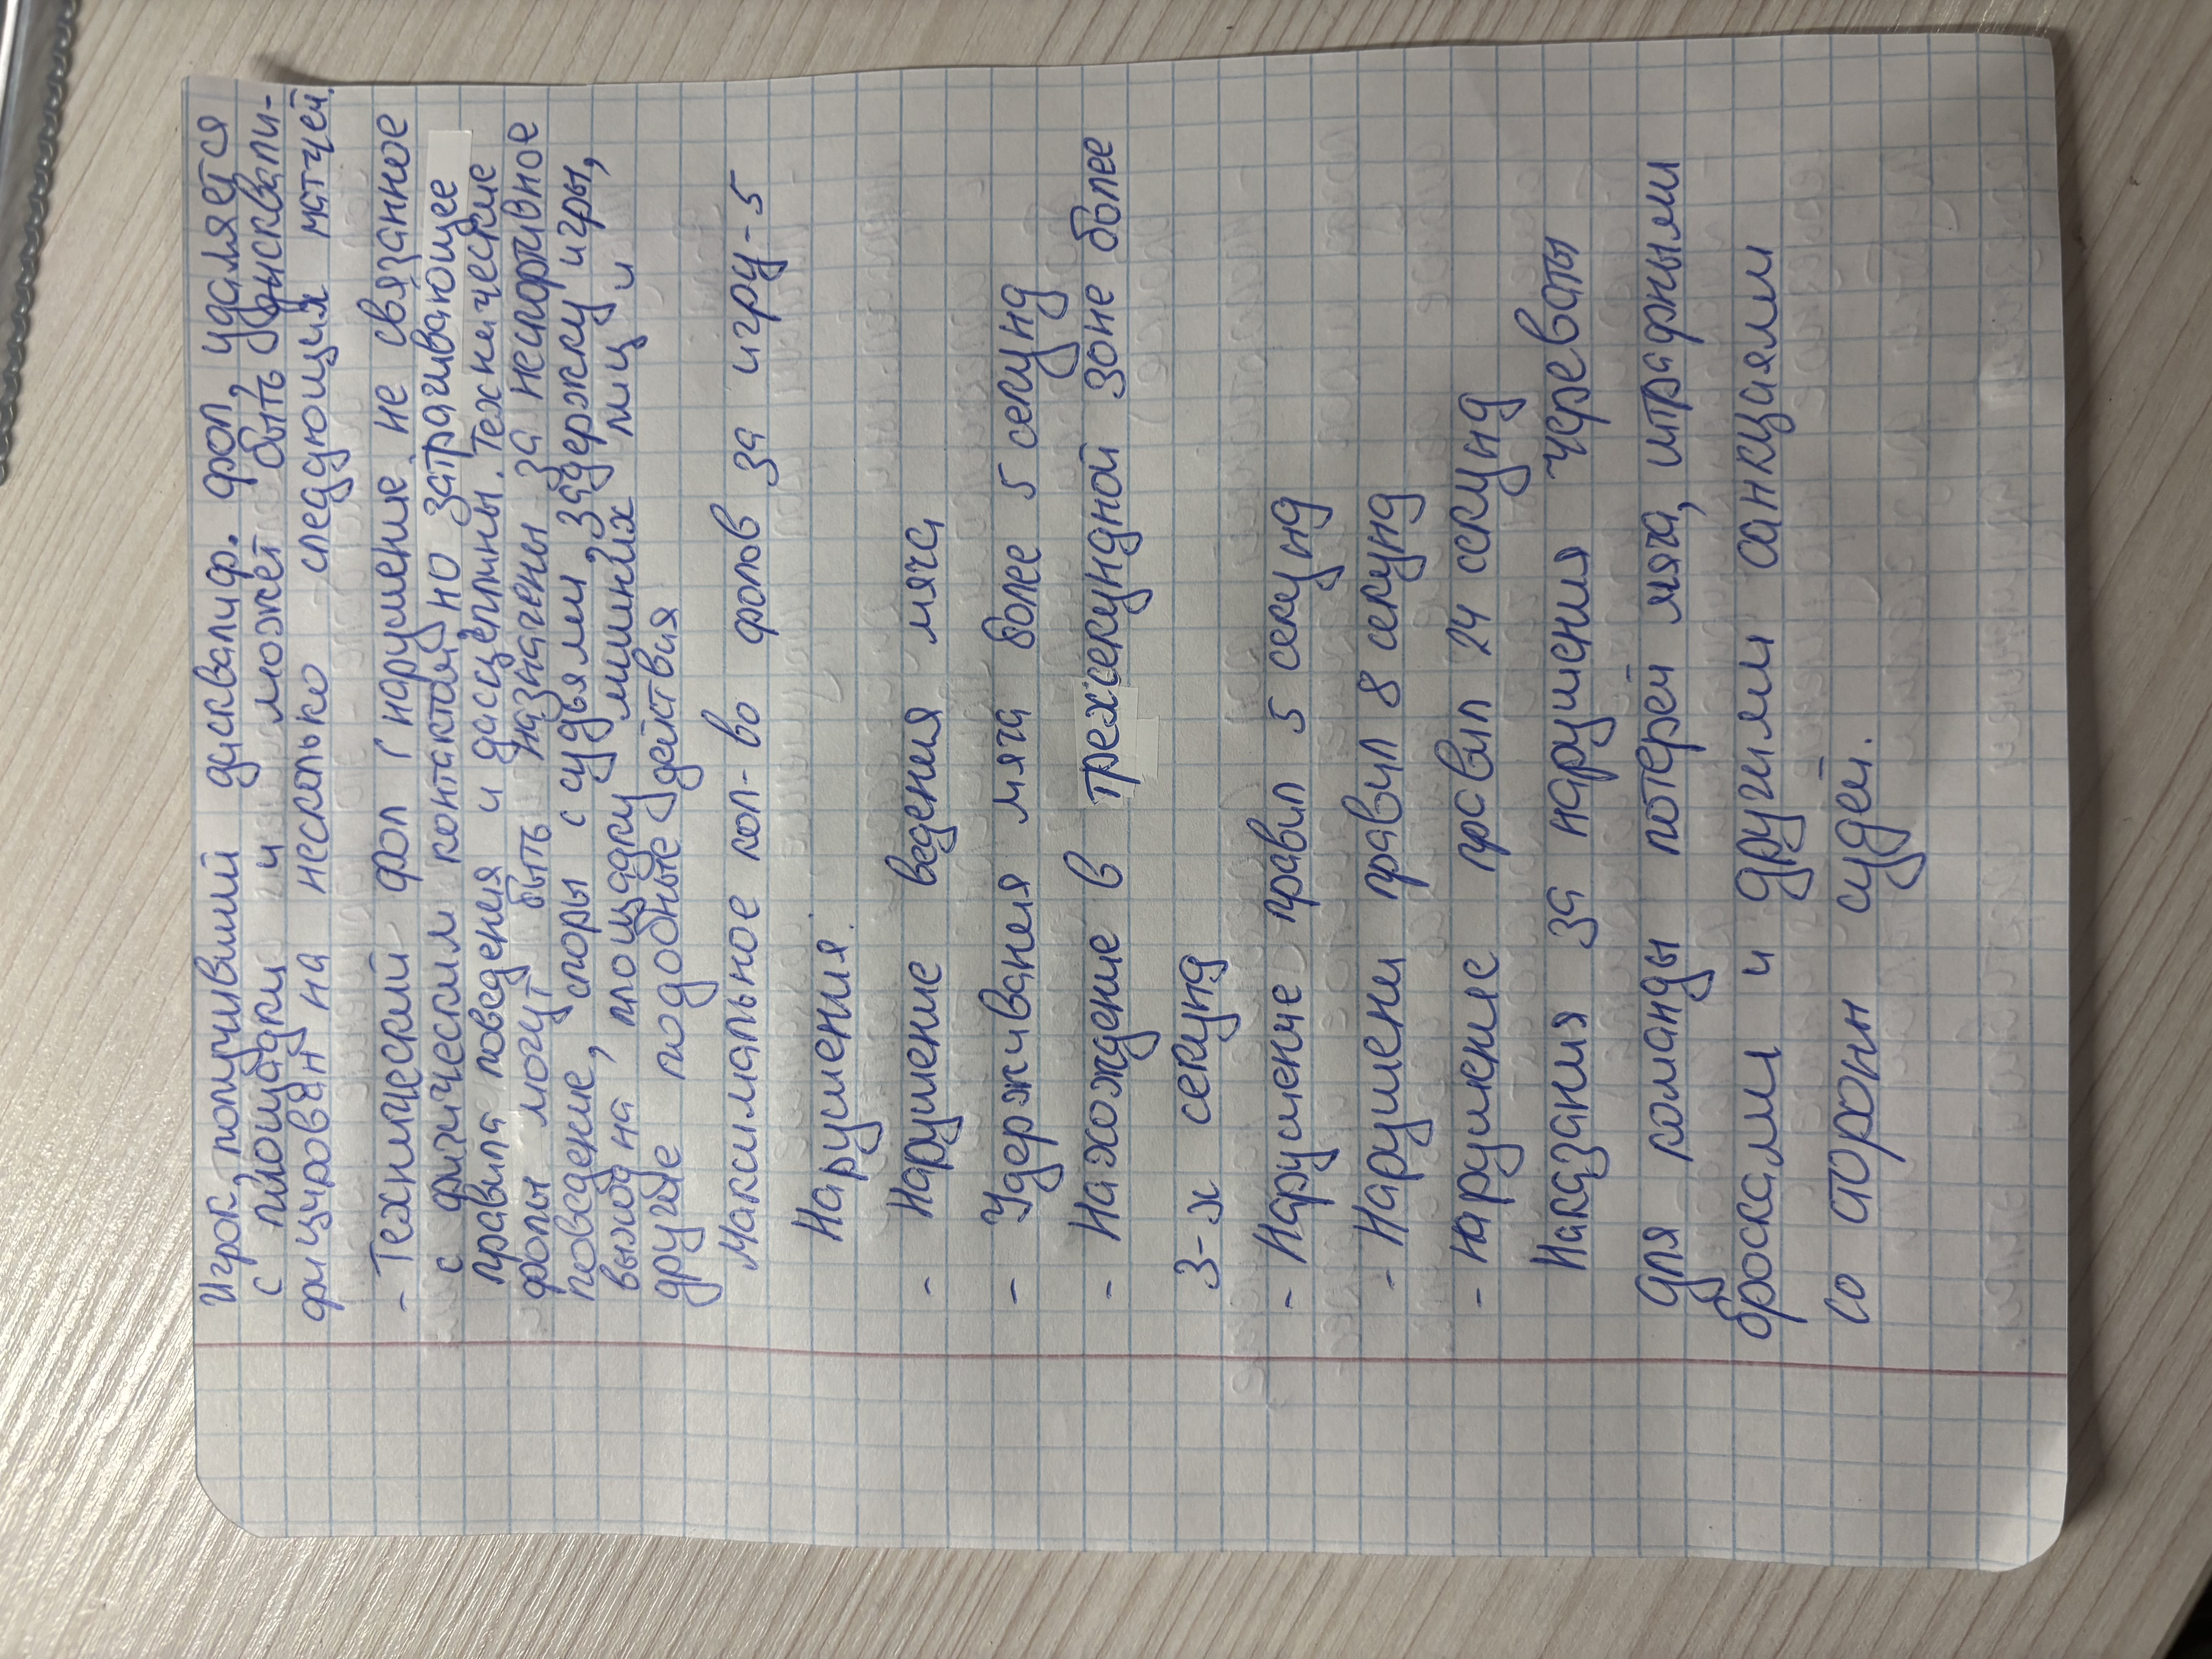 Игрок, получивший дисквалиф. фол, удаляется
с площадки и может быть дисквали-
фицирован на несколько следующих матчей.
- Технический фол ( нарушение не связанное
с физическим контактом, но затрагивающее
правила поведения и дасцеплины. Технические
фолы могут быть назначены за неспортивное
поведение, споры с судьями задержку игры,
выход на площадку лишних лиц и
другие подобные действия
Максимальное кол-во фолов за игру-5
Нарушения.
- Нарушение ведения мяча
- Удерживания мяча более 5 секунд
- Нахождение в трехсекундной зоне более
3-х секунд
- Нарушение правил 5 секунд
- Нарушени правил 8 секунд
- нарушение правил 24 секунд
Наказания за нарушения череваты
для команды потерей мяча, штрафными
бросками и другими санкциями
со сторон судей.